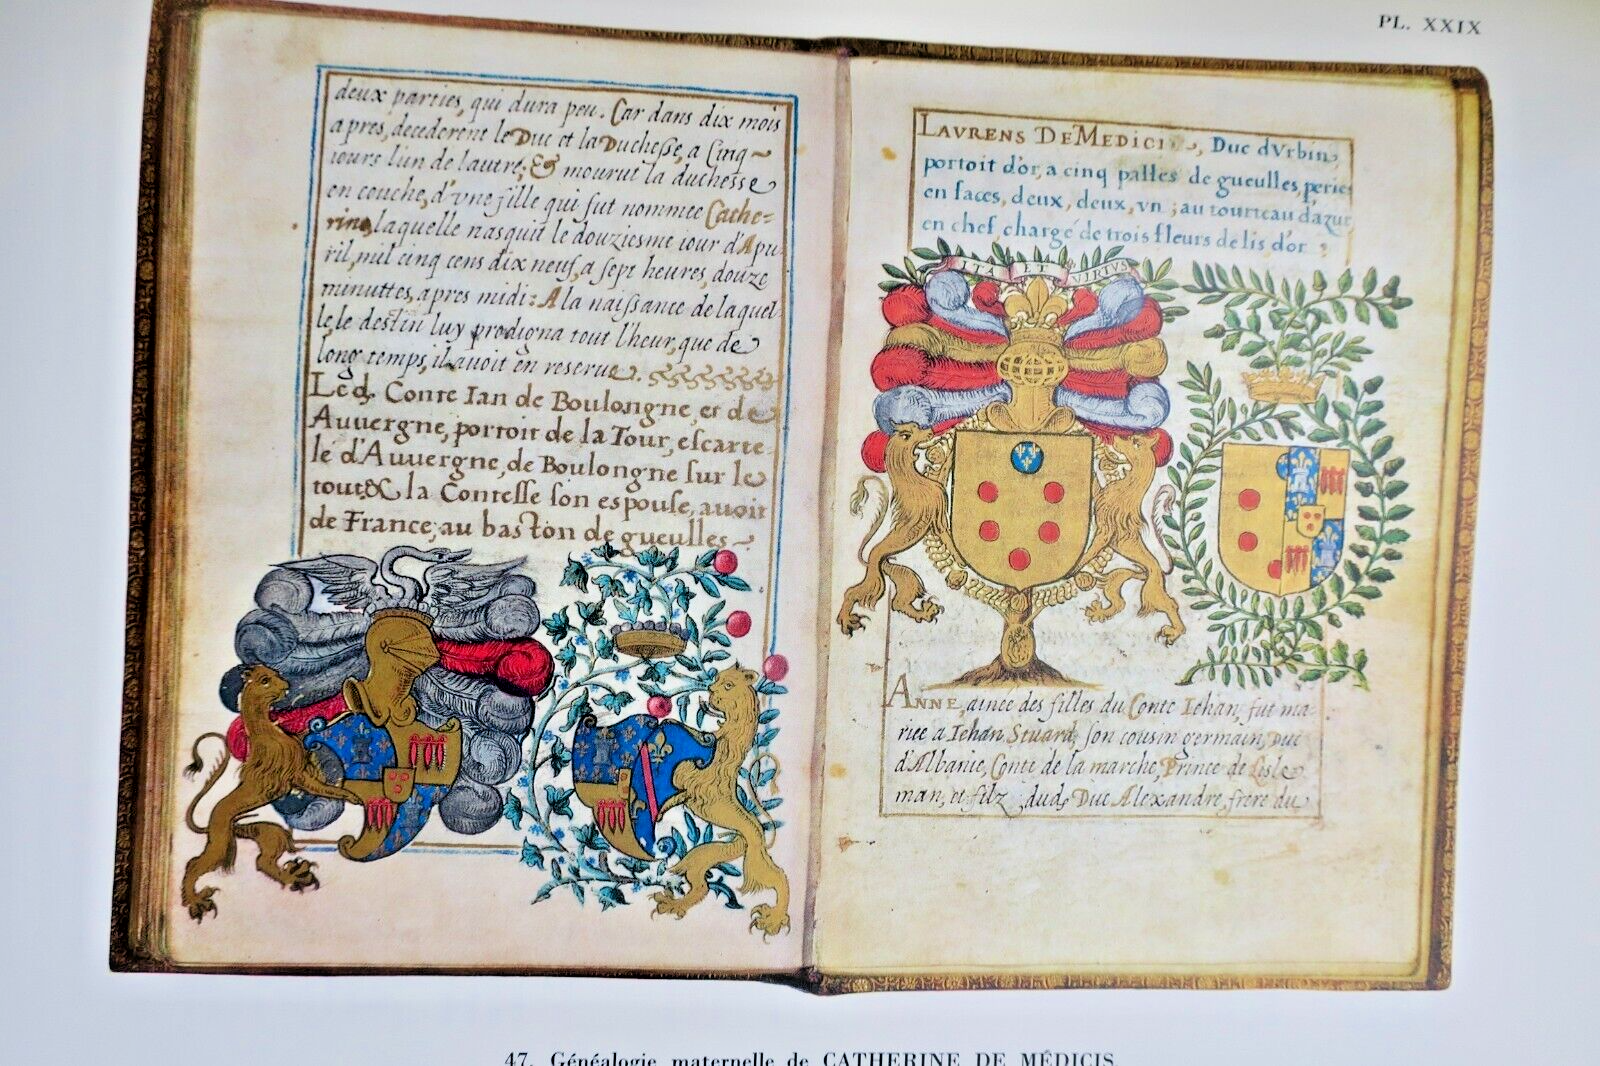 PL. XXIX
deux parties, qui dura peu. Car dans dix mois
apres, decederent le Duc et la Duchesse, a Cinq~
iours l'un de lautre; & mourut la duchesse
en couche, d'vne fille qui fut nommee Cathe=
rine, laquelle nasquit le douziesme iour d'Apu-
ril, mil cinq cens dix neuf, a sept heures, douze
minuttes, apres midi: A la naissance de laquel-
le le destin luy prodigna tout l'heur, que de
long temps, il avoit en reserue.
Led. Conte Ian de Boulongne, et de
Auuergne, portoit de la Tour, escarte-
lé d'Auuergne, de Boulongne sur le
tout & la Contesse son espouse, avoit
de France, au baston de gueulles~
LAVRENS DE MEDICI, Duc dVrbin,
portoit d'or, a cinq palles de gueulles, peries
en faces, deux, deux, vn; au tourteau dazur
en chef, chargé de trois fleurs de lis d'or
ITA ET VIRTVS
ANNE, ainée des filles du Conte Iehan, fut ma-
riee a Iehan Stuard, son cousin germain, Duc
d'Albanie, Conte de la marche, Prince de Lisle
man, et filz dud. Duc Alexandre, frere du
47. Généalogie maternelle de CATHERINE DE MÉDICIS